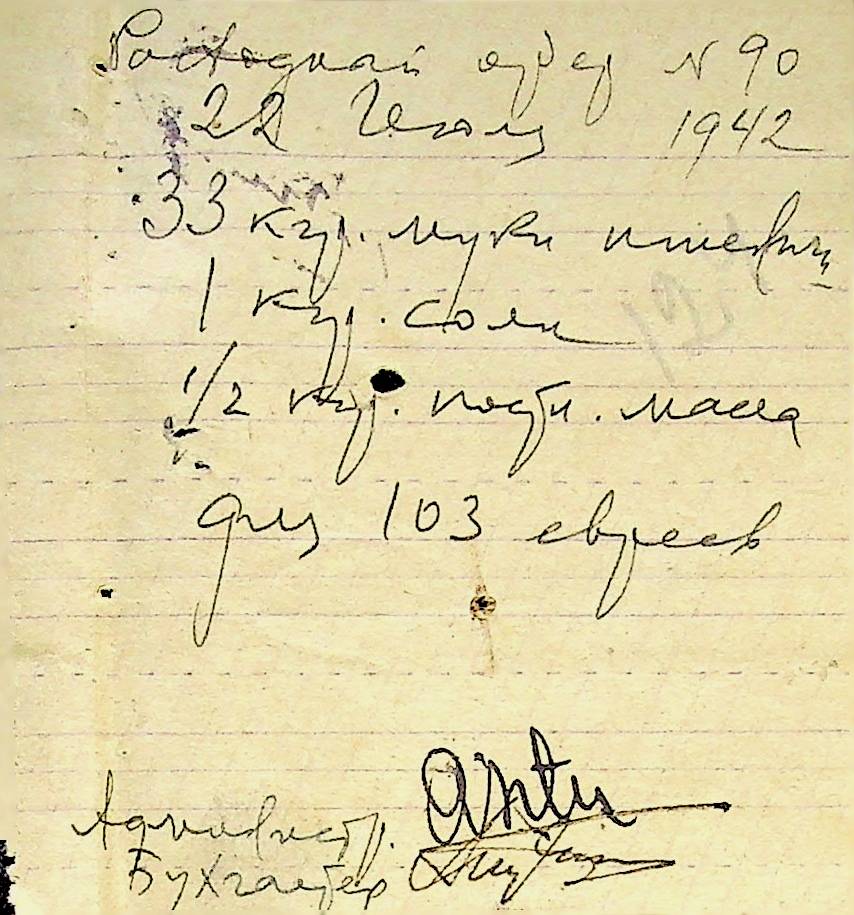 Расходный ордер N 90
22 Июля 1942
33 кгр. муки пшеничн
1 кгр. соли
1/2 кгр. постн. масла
для 103 евреев
Администр.
Бухгалтер